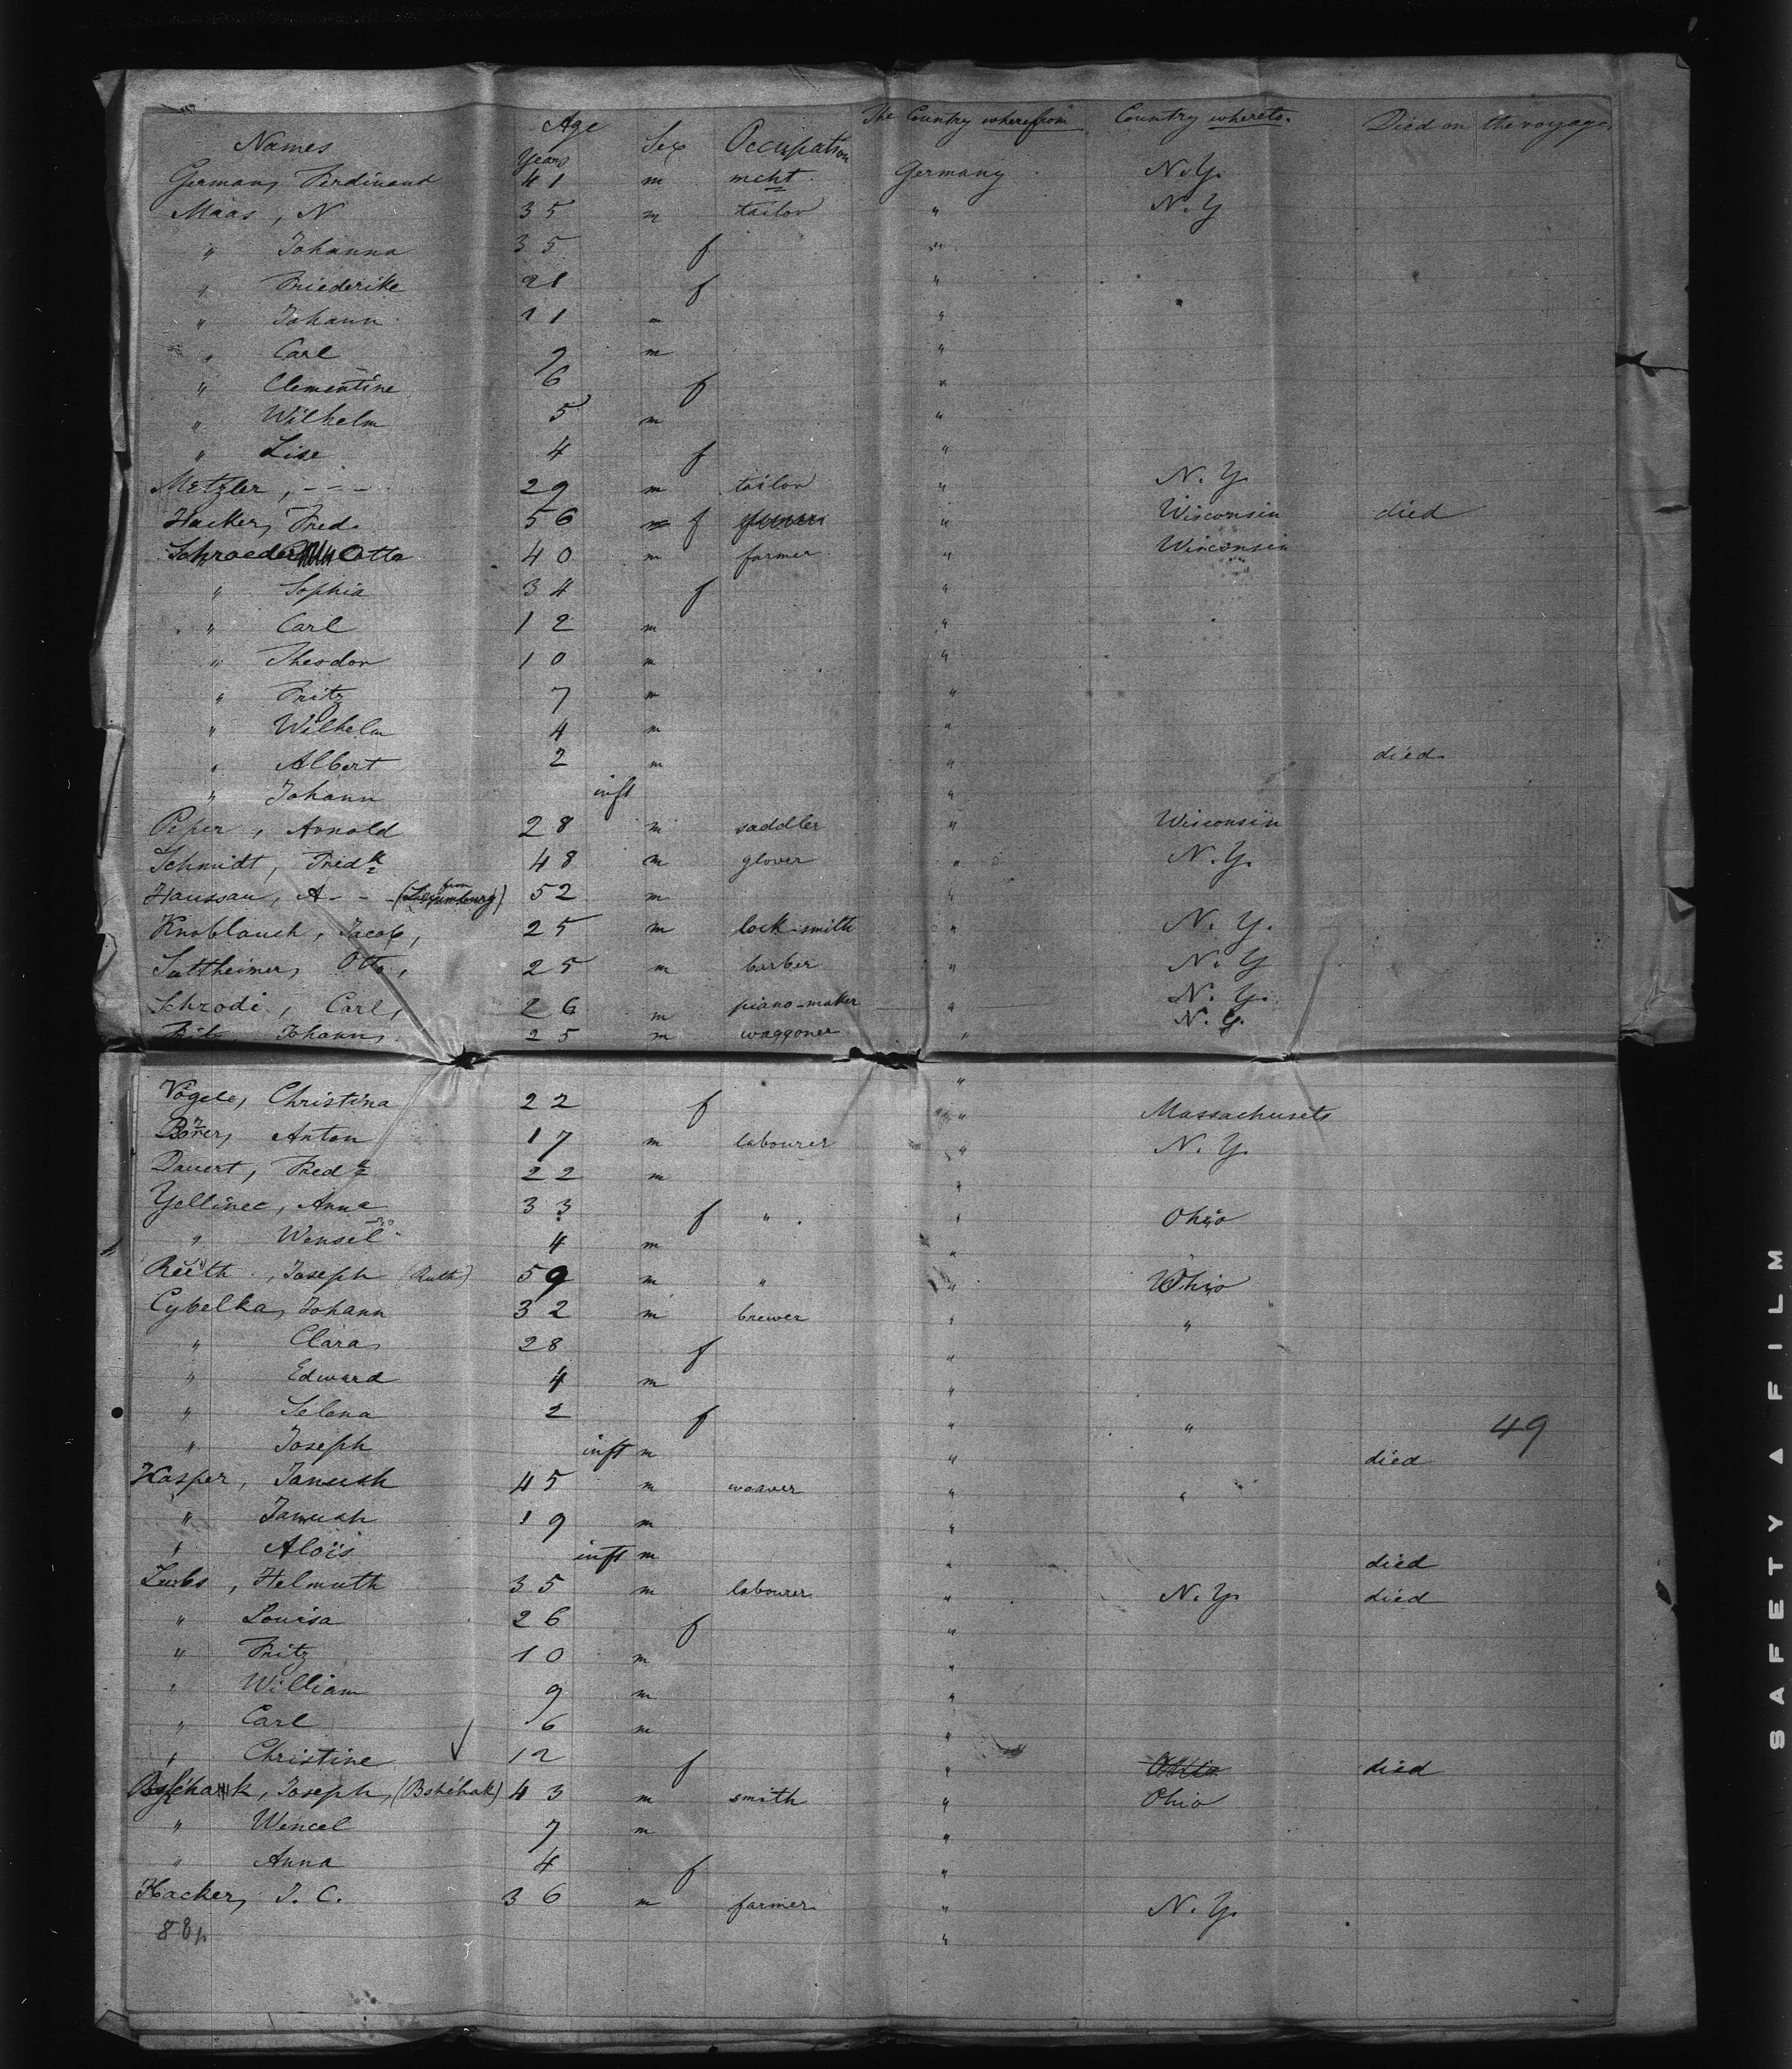 Names Age Years Sex Occupation The Country wherefrom Country whereto. Died on the voyage,
German, Ferdinand 41 m mcht. Germany N.Y.
Maas, N 35 m tailor " N.Y
" Johanna 35 f "
" Friederike 21 f "
" Johann 11 m "
" Carl 9 m "
" Clementine 6 f "
" Wilhelm 5 m "
" Lise 4 f "
Metzler, - - - 29 m tailor " N.Y.
Hacker, Fred. 56 f " Wisconsin died
Schroeder Otto 40 m farmer " Wisconsin
" Sophia 34 f "
" Carl 12 m "
" Theodor 10 m "
" Fritz 7 m "
" Wilhelm 4 m "
" Albert 2 m " died
" Johann inft "
Peper, Arnold 28 m saddler " Wisconsin
Schmidt, Fredk 48 m glover " N.Y.
Haussau, A - - (from Luxumburg) 52 m "
Knoblauch, Jacob, 25 m lock-smith " N.Y.
Sattheimer, Otto, 25 m barber " N.Y
Schrodi, Carl, 26 m piano-maker " N.Y.
Johann, 25 m waggoner " N.Y.
Vögele, Christina 22 f " Massachusets
Anton 17 m labourer " N.Y.
Dauert, Fredk 22 m "
Yellinec, Anna 33 f " " Ohio
" Wensel 4 m "
Rüth, Joseph (Ruth) 59 m " " Ohio
Cybelka, Johann 32 m brewer " "
" Clara 28 f "
" Edward 4 m "
" Selena 2 f " " 49
" Joseph inft m " died
Kasper, Janush 45 m weaver " "
" Janush 19 m "
" Aloïs inft m " died
Lubs, Helmuth 35 m labourer " N.Y. died
" Louisa 26 f "
" Fritz 10 m "
" William 9 m "
" Carl 6 m "
" Christine 12 f " Ohio died
Joseph, (Bshéhak) 43 m smith " Ohio
" Wencel 7 m "
" Anna 4 f "
Hacker, J. C. 36 m farmer " N.Y.
"
SAFETY ▲ FILM